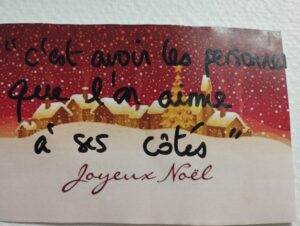 "c'est avoir les personnes
que l'on aime
à ses côtés"
Joyeux Noël